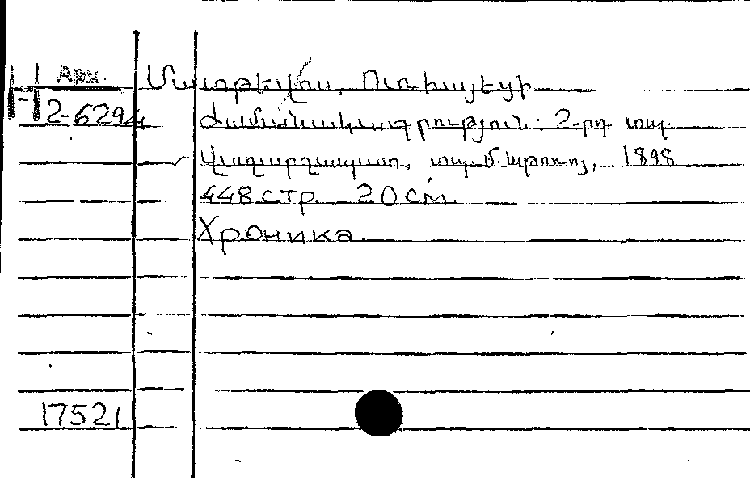 Арм. Մատթէվոս, Ուռհայեցի
2-6294 Ժամանակագրություն: 2-րդ տպ.
Վաղարշապատ, տպ. Մ. Աթոռոյ, 1898
448 стр. 20 см.
Хроника
17521